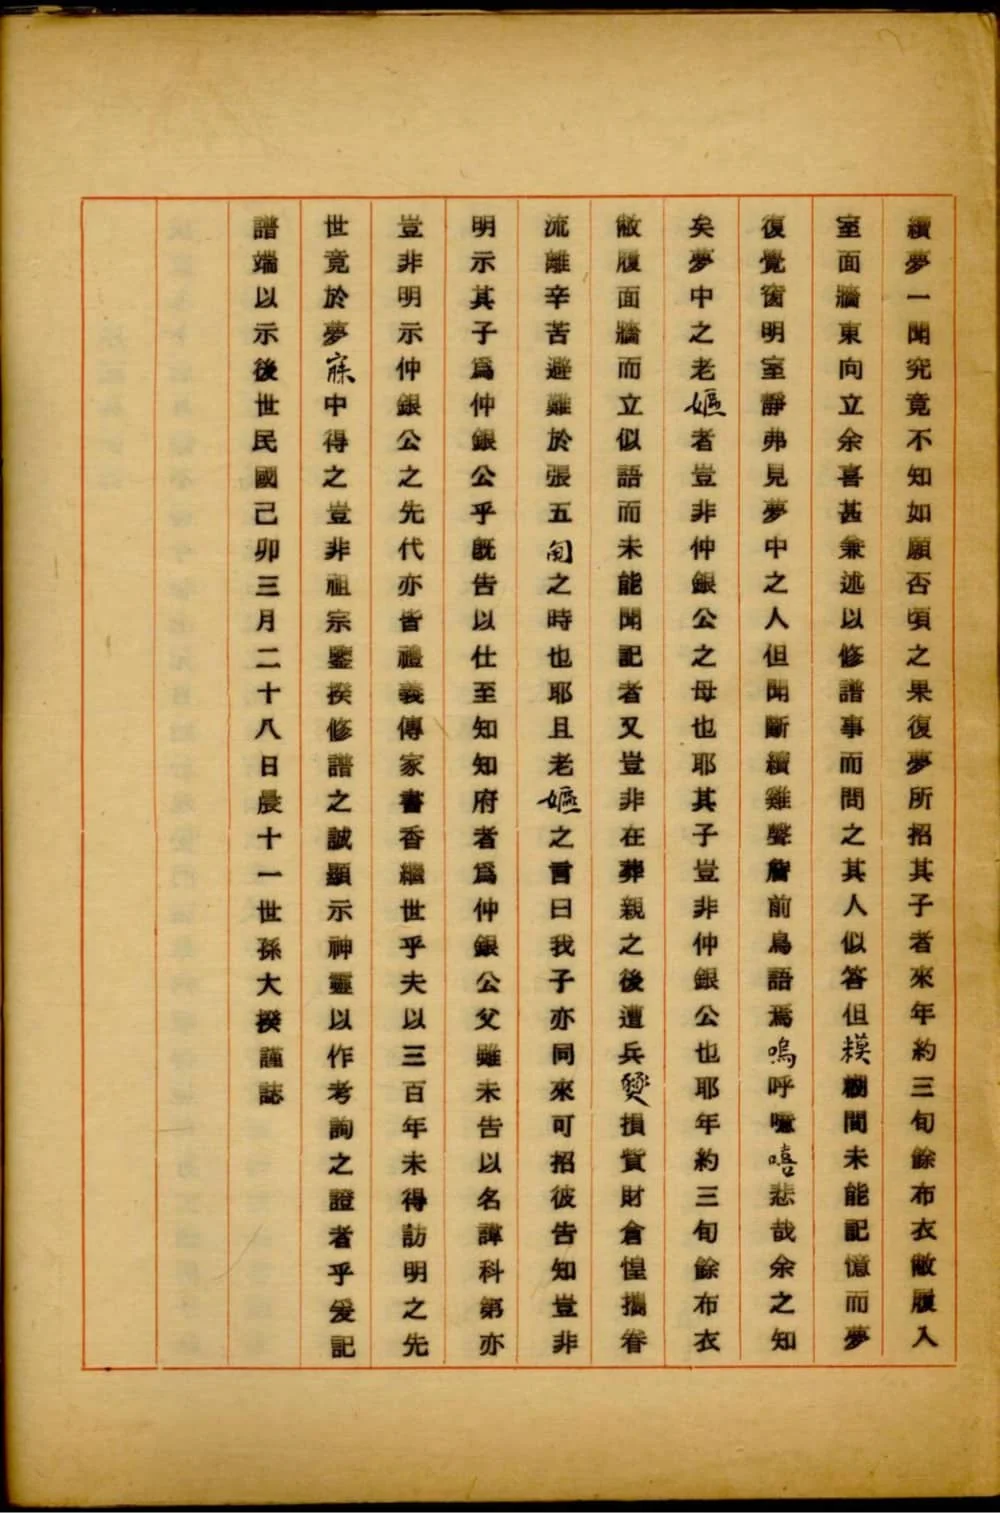 續夢一聞究竟不知如願否頃之果復夢所招其子者來年約三旬餘布衣敝履入
室面牆東向立余喜甚兼述以修譜事而問之其人似答但模糊間未能記憶而夢
復覺窗明室靜弗見夢中之人但聞斷續雞聲簷前鳥語焉嗚呼噫嘻悲哉余之知
矣夢中之老嫗者豈非仲銀公之母也耶其子豈非仲銀公也耶年約三旬餘布衣
敝履面牆而立似語而未能聞記者又豈非在葬親之後遭兵燹損貲財倉惶攜眷
流離辛苦避難於張五甸之時也耶且老嫗之言曰我子亦同來可招彼告知豈非
明示其子為仲銀公乎既告以仕至知知府者為仲銀公父雖未告以名諱科第亦
豈非明示仲銀公之先代亦皆禮義傳家書香繼世乎夫以三百年未得訪明之先
世竟於夢寐中得之豈非祖宗鑒揆修譜之誠顯示神靈以作考詢之證者乎爰記
譜端以示後世民國己卯三月二十八日晨十一世孫大揆謹誌